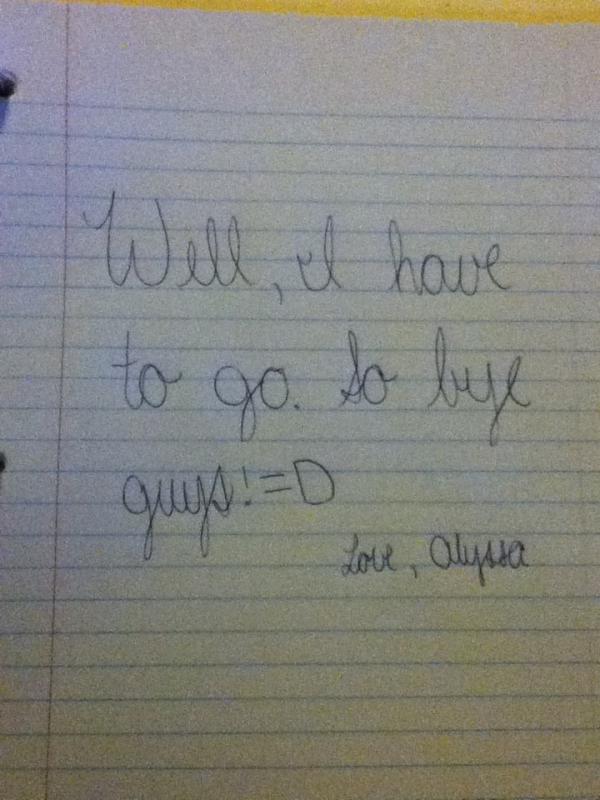 Well, I have
to go. So bye
guys! =D
Love, Alyssa